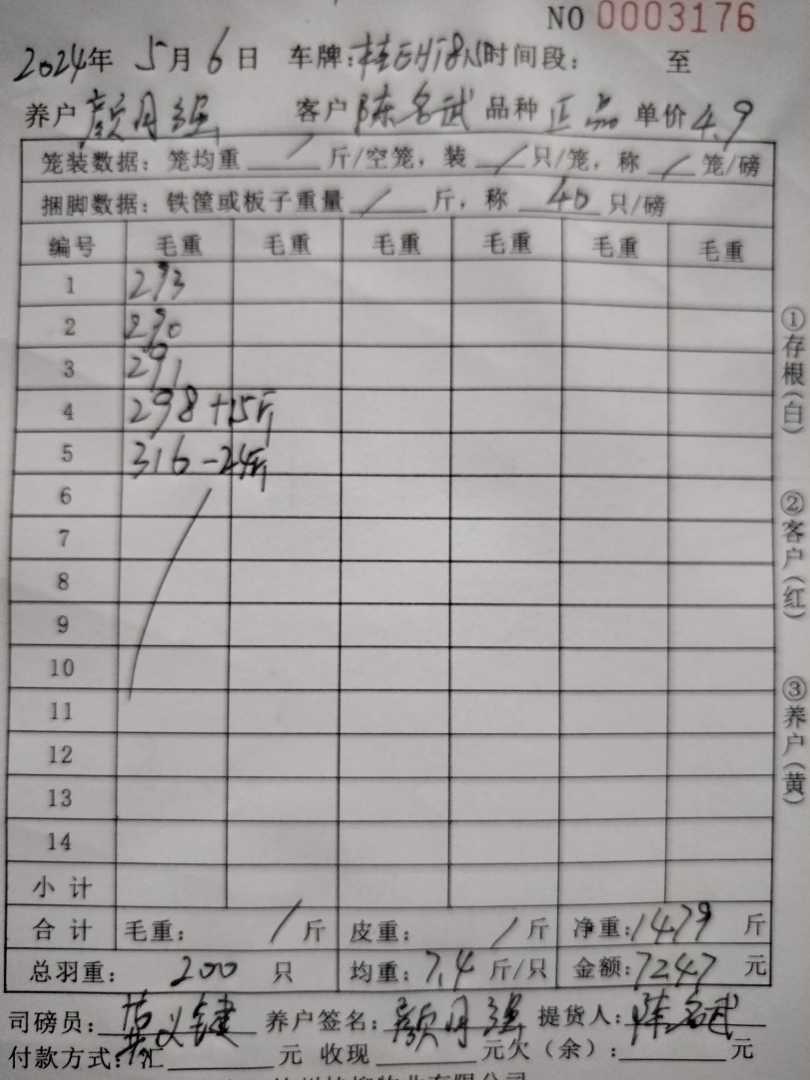 NO 0003176
2024年 5月6日 车牌: 时间段: 至
养户 颜月强 客户 陈名武 品种 正品 单价 4.9
笼装数据: 笼均重 / 斤/空笼, 装 / 只/笼, 称 / 笼/磅
捆脚数据: 铁筐或板子重量 / 斤, 称 40 只/磅
编号 毛重 毛重 毛重 毛重 毛重 毛重
1 293
2 290
3 291
4 298+15斤
5 316-24斤
6
7
8
9
10
11
12
13
14
小计
合计 毛重: / 斤 皮重: / 斤 净重: 1479 斤
总羽重: 200 只 均重: 7.4 斤/只 金额: 7247 元
司磅员: 养户签名: 颜月强 提货人: 陈名武
付款方式: 汇 元 收现 元欠(余): 元
①存根(白)
②客户(红)
③养户(黄)